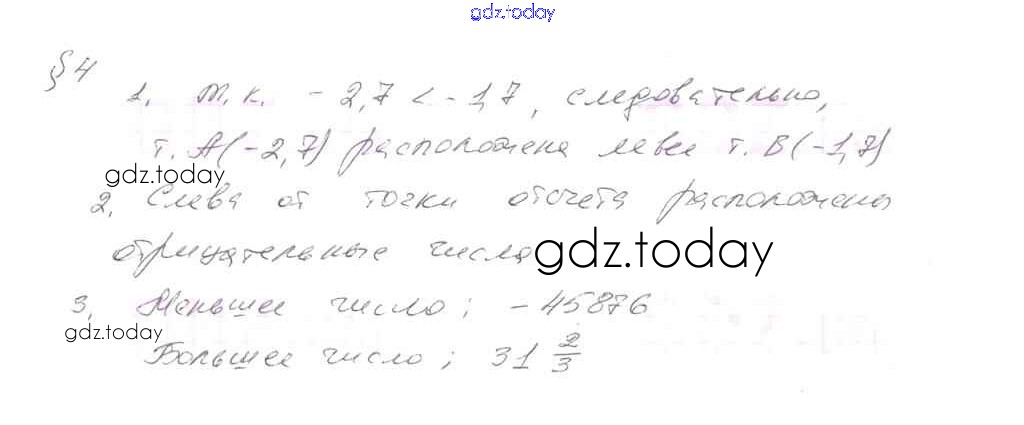 gdz.today
§4
1. т.к. -2,7 < -1,7, следовательно,
т. A(-2,7) расположена левее т. B(-1,7)
gdz.today
2. Слева от точки отсчета расположены
отрицательные числа
gdz.today
3. Меньшее число: -45876
gdz.today
Большее число: 31 2/3